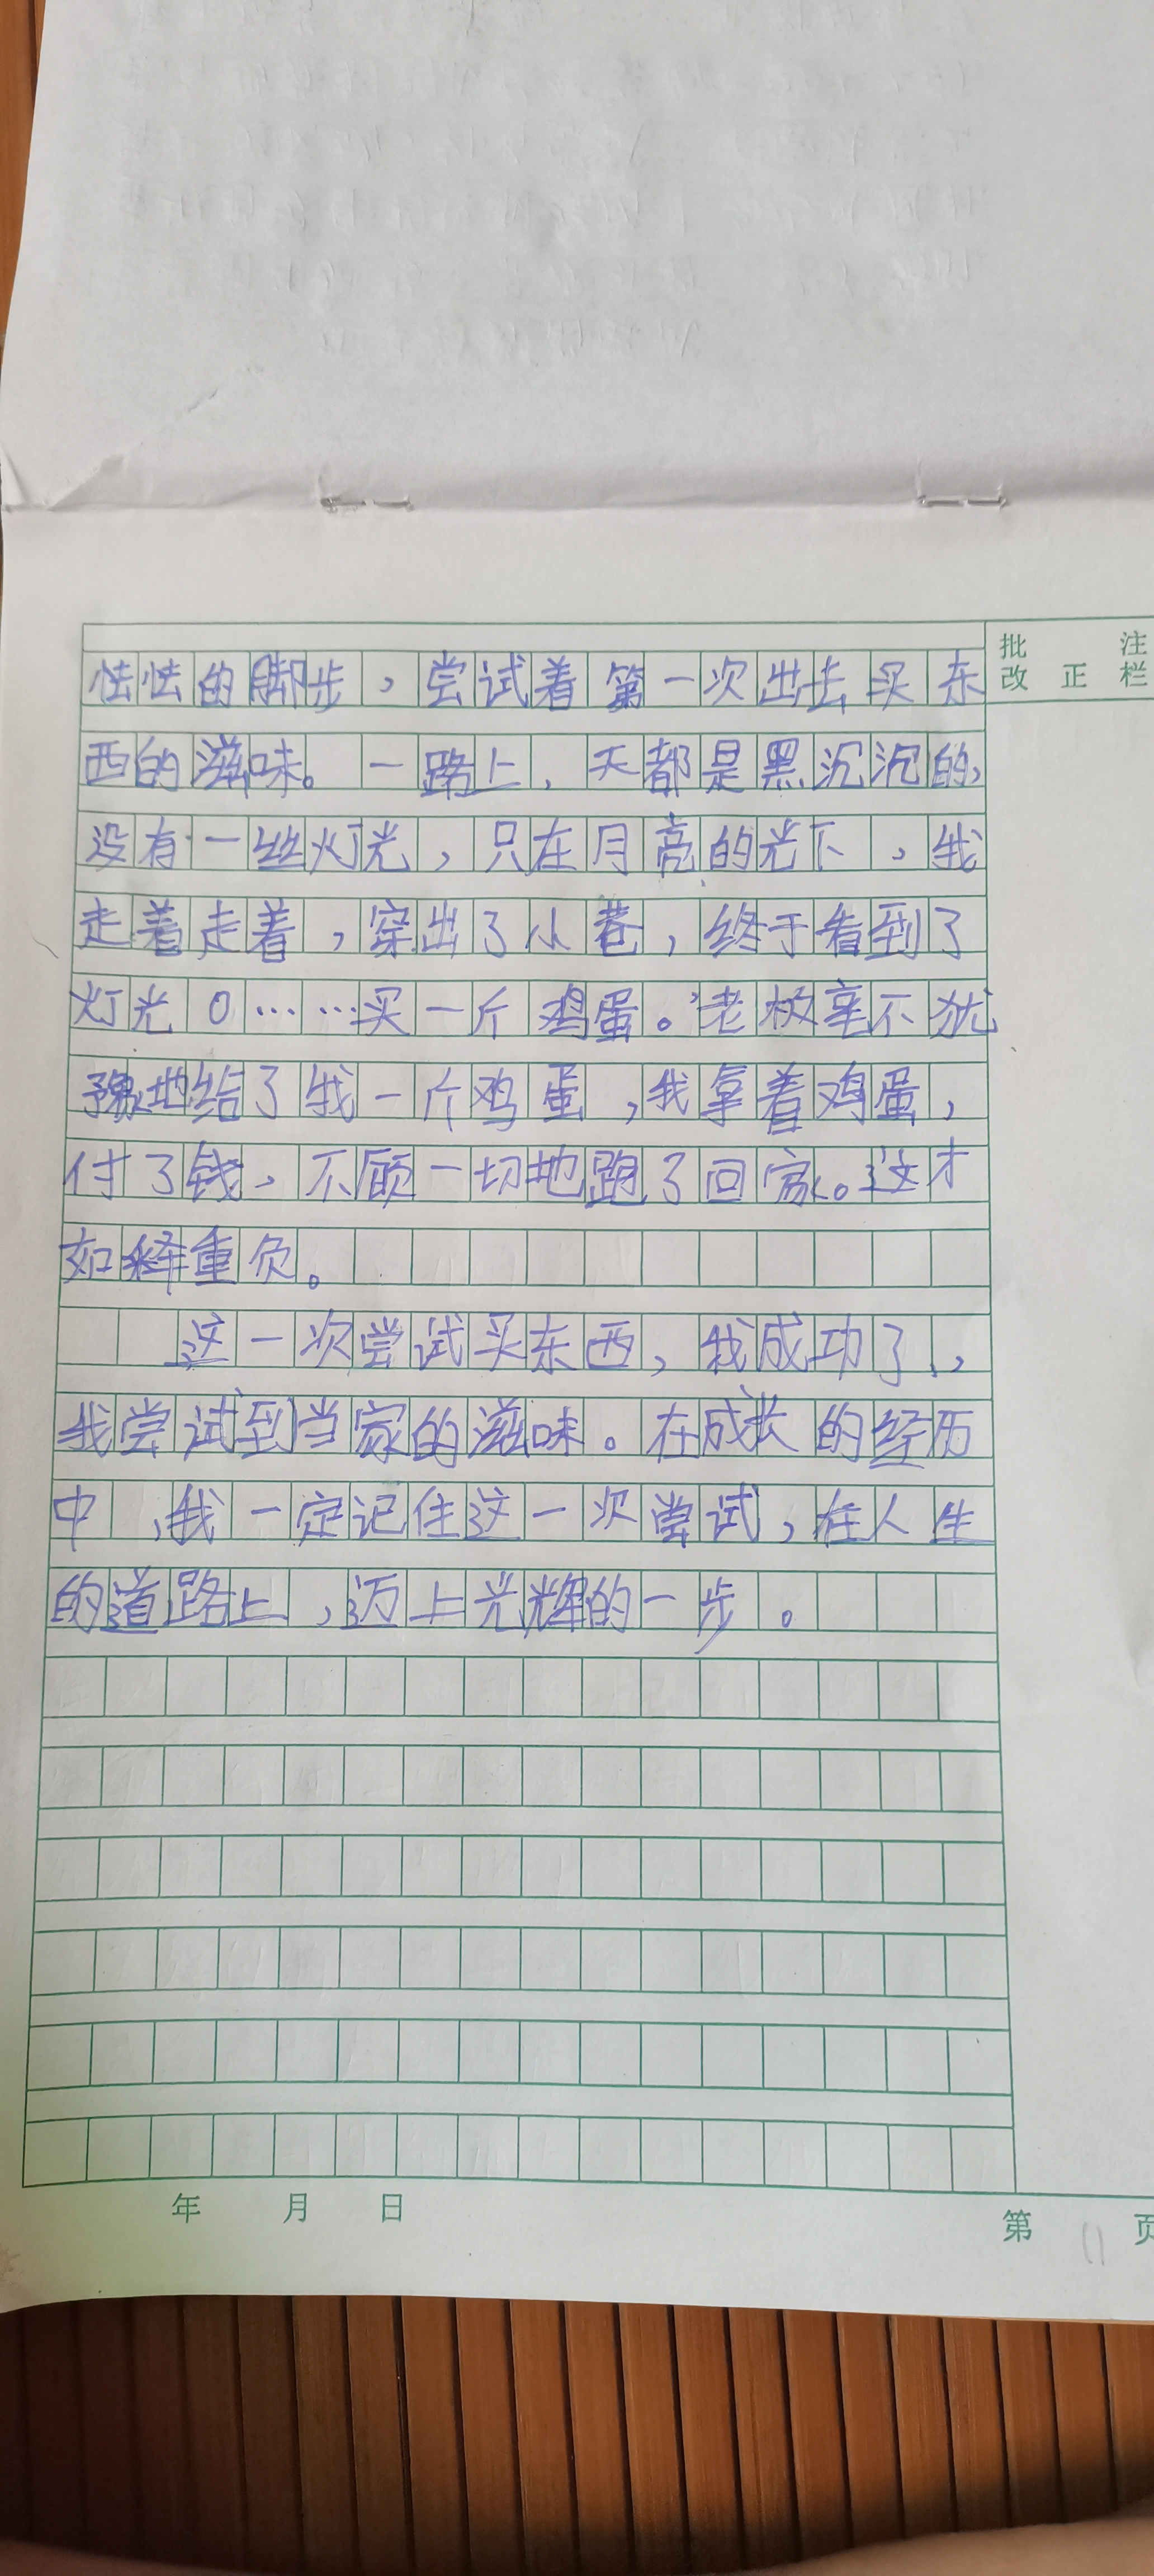 批 注
改 正 栏
怯怯的脚步，尝试着第一次出去买东
西的滋味。一路上，天都是黑沉沉的，
没有一丝灯光，只在月亮的光下，我
走着走着，穿出了小巷，终于看到了
灯光。……买一斤鸡蛋。”老板毫不犹
豫地给了我一斤鸡蛋，我拿着鸡蛋，
付了钱，不顾一切地跑了回家。这才
如释重负。
这一次尝试买东西，我成功了，
我尝试到当家的滋味。在成长的经历
中，我一定记住这一次尝试，在人生
的道路上，迈上光辉的一步。
年 月 日
第 11 页